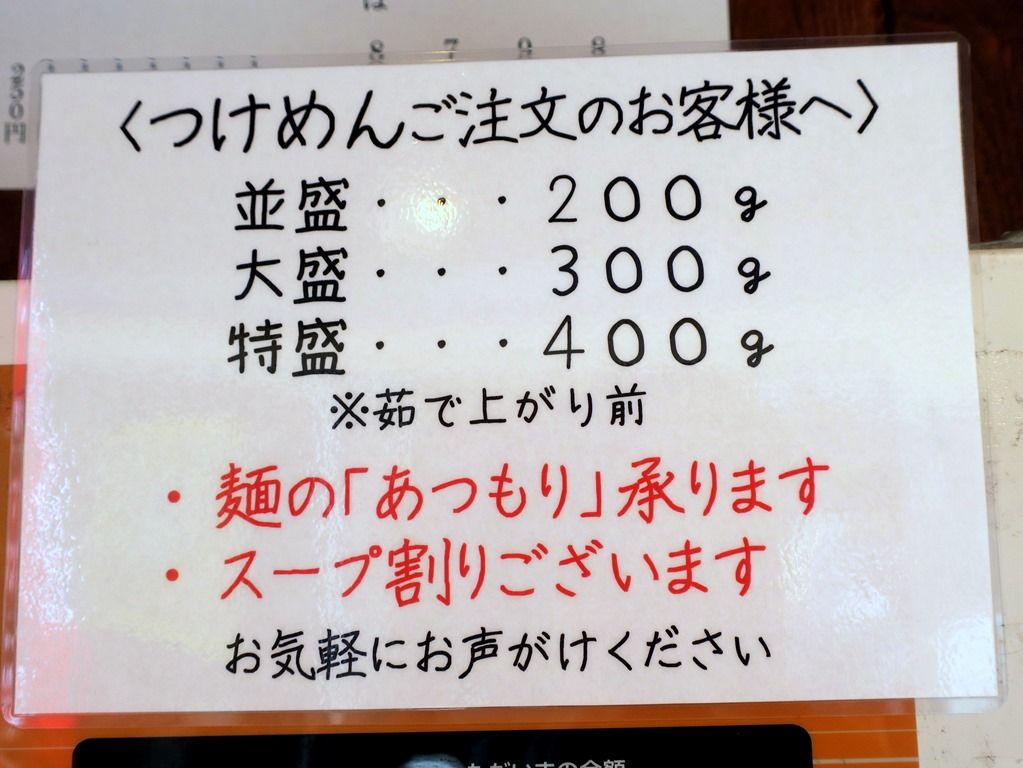 は
8 7 9 8
950円
〈つけめんご注文のお客様へ〉
並盛・・・200g
大盛・・・300g
特盛・・・400g
※茹で上がり前
・麺の「あつもり」承ります
・スープ割りございます
お気軽にお声がけください